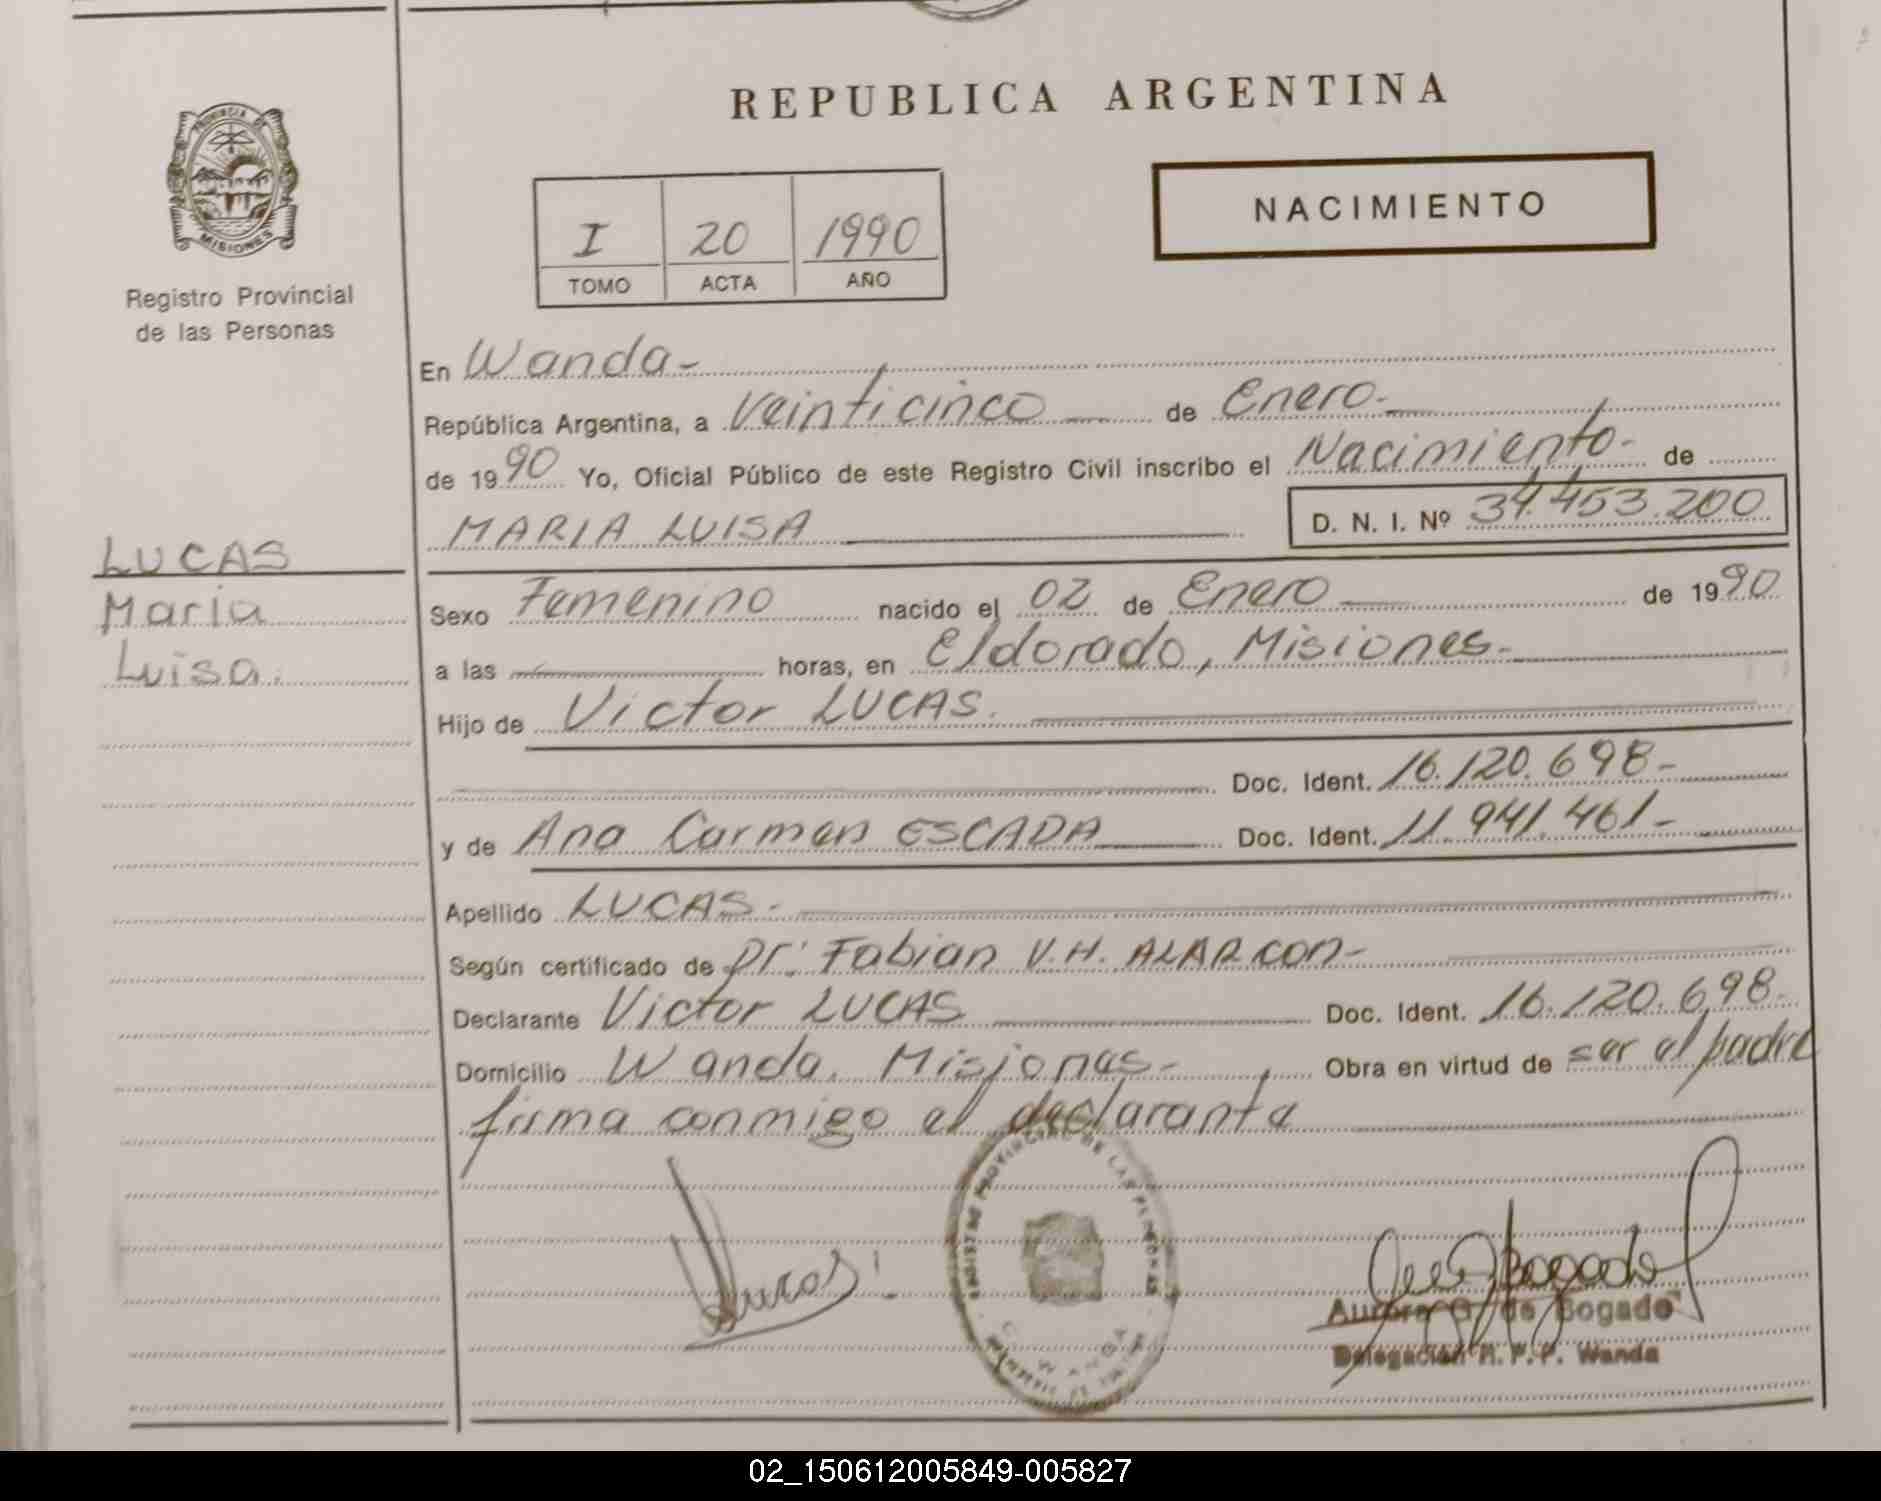 PROVINCIA DE
MISIONES
Registro Provincial
de las Personas
LUCAS
Maria
Luisa.
REPUBLICA ARGENTINA
I 20 1990
TOMO ACTA AÑO
NACIMIENTO
En Wanda-
República Argentina, a Veinticinco de Enero.-
de 1990 Yo, Oficial Público de este Registro Civil inscribo el Nacimiento- de
MARIA LUISA D. N. I. Nº 34.453.200
Sexo Femenino nacido el 02 de Enero de 1990
a las horas, en Eldorado, Misiones.-
Hijo de Victor LUCAS.
Doc. Ident. 16.120.698-
y de Ana Carmen ESCADA Doc. Ident. 11.941.461-
Apellido LUCAS.-
Según certificado de Dr. Fabian V.H. ALARCON-
Declarante Victor LUCAS Doc. Ident. 16.120.698-
Domicilio Wanda. Misiones- Obra en virtud de ser el padre
firma conmigo el declarante
REGISTRO PROVINCIAL DE LAS PERSONAS
WANDA
Aurora G. de Bogado
Delegación R. P. P. Wanda
02_150612005849-005827